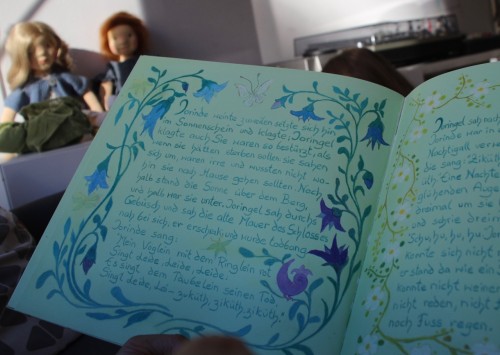 Jorinde weinte zuweilen, setzte sich hin
im Sonnenschein und klagte; Joringel
klagte auch. Sie waren so bestürzt, als
wenn sie hätten sterben sollen: sie sahen
sich um, waren irre und wussten nicht wo-
hin sie nach Hause gehen sollten. Noch
halb stand die Sonne über dem Berg,
und halb war sie unter. Joringel sah durchs
Gebüsch und sah die alte Mauer des Schlosses
nah bei sich; er erschrak und wurde todbang.
Jorinde sang:
Mein Vöglein mit dem Ringlein rot
Singt Leide, Leide, Leide:
Es singt dem Täubelein seinen Tod,
Singt Leide, Lei - zuküth, ziküth, ziküth.
Joringel sah nach
Jorinde war in
Nachtigall
die sang: "Ziküth
Eine Nachteule
glühenden Augen
dreimal um sie
und schrie dreimal
Schu, hu, hu, hu. Joringel
konnte sich nicht
er stand da wie ein
konnte nicht weinen
nicht reden, nicht
noch Fuss regen.